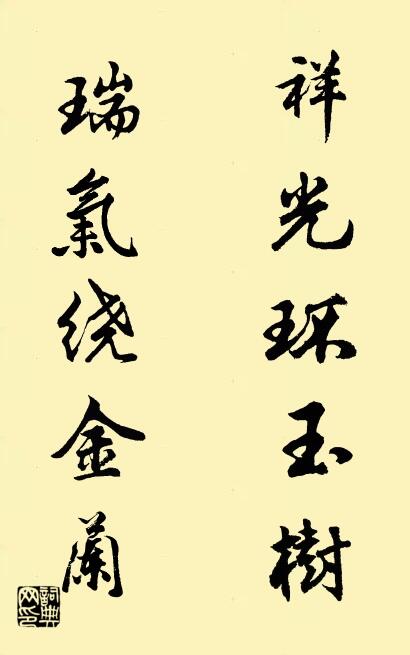 祥光环玉樹
瑞氣绕金蘭
詞典
网印